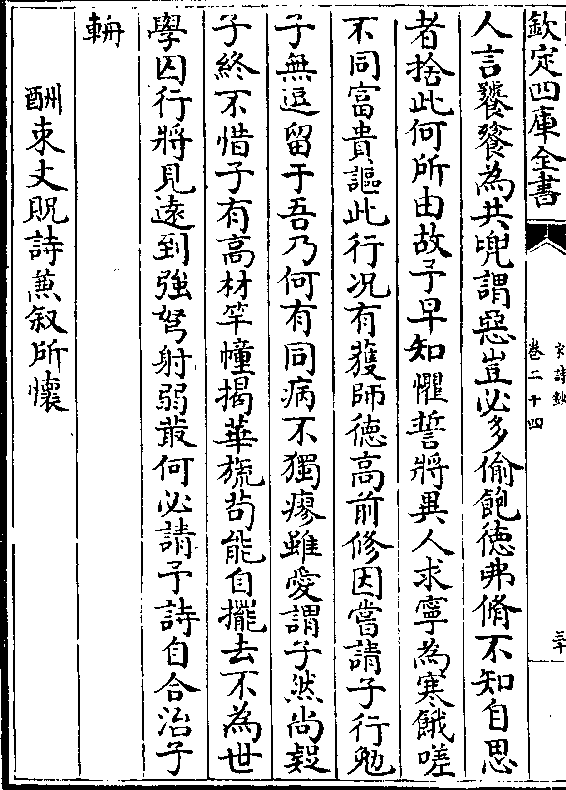 欽定四庫全書
宋詩鈔
卷二十四
三十
人言饕餮為共兜謂惡豈必多偷飽德弗脩不知自思
者捨此何所由故子早知懼誓將異人求寧為寒餓嗟
不同富貴謳此行况有獲師德高前修因嘗請子行勉
子無逗留于吾乃何有同病不獨瘳雖愛謂子然尚疑
子終不惜子有高材竿幢揭華旒苟能自擺去不為世
學囚行將見遠到強弩射弱菆何必請予詩自合治子
輈
酬束丈貺詩蒹叙所懷